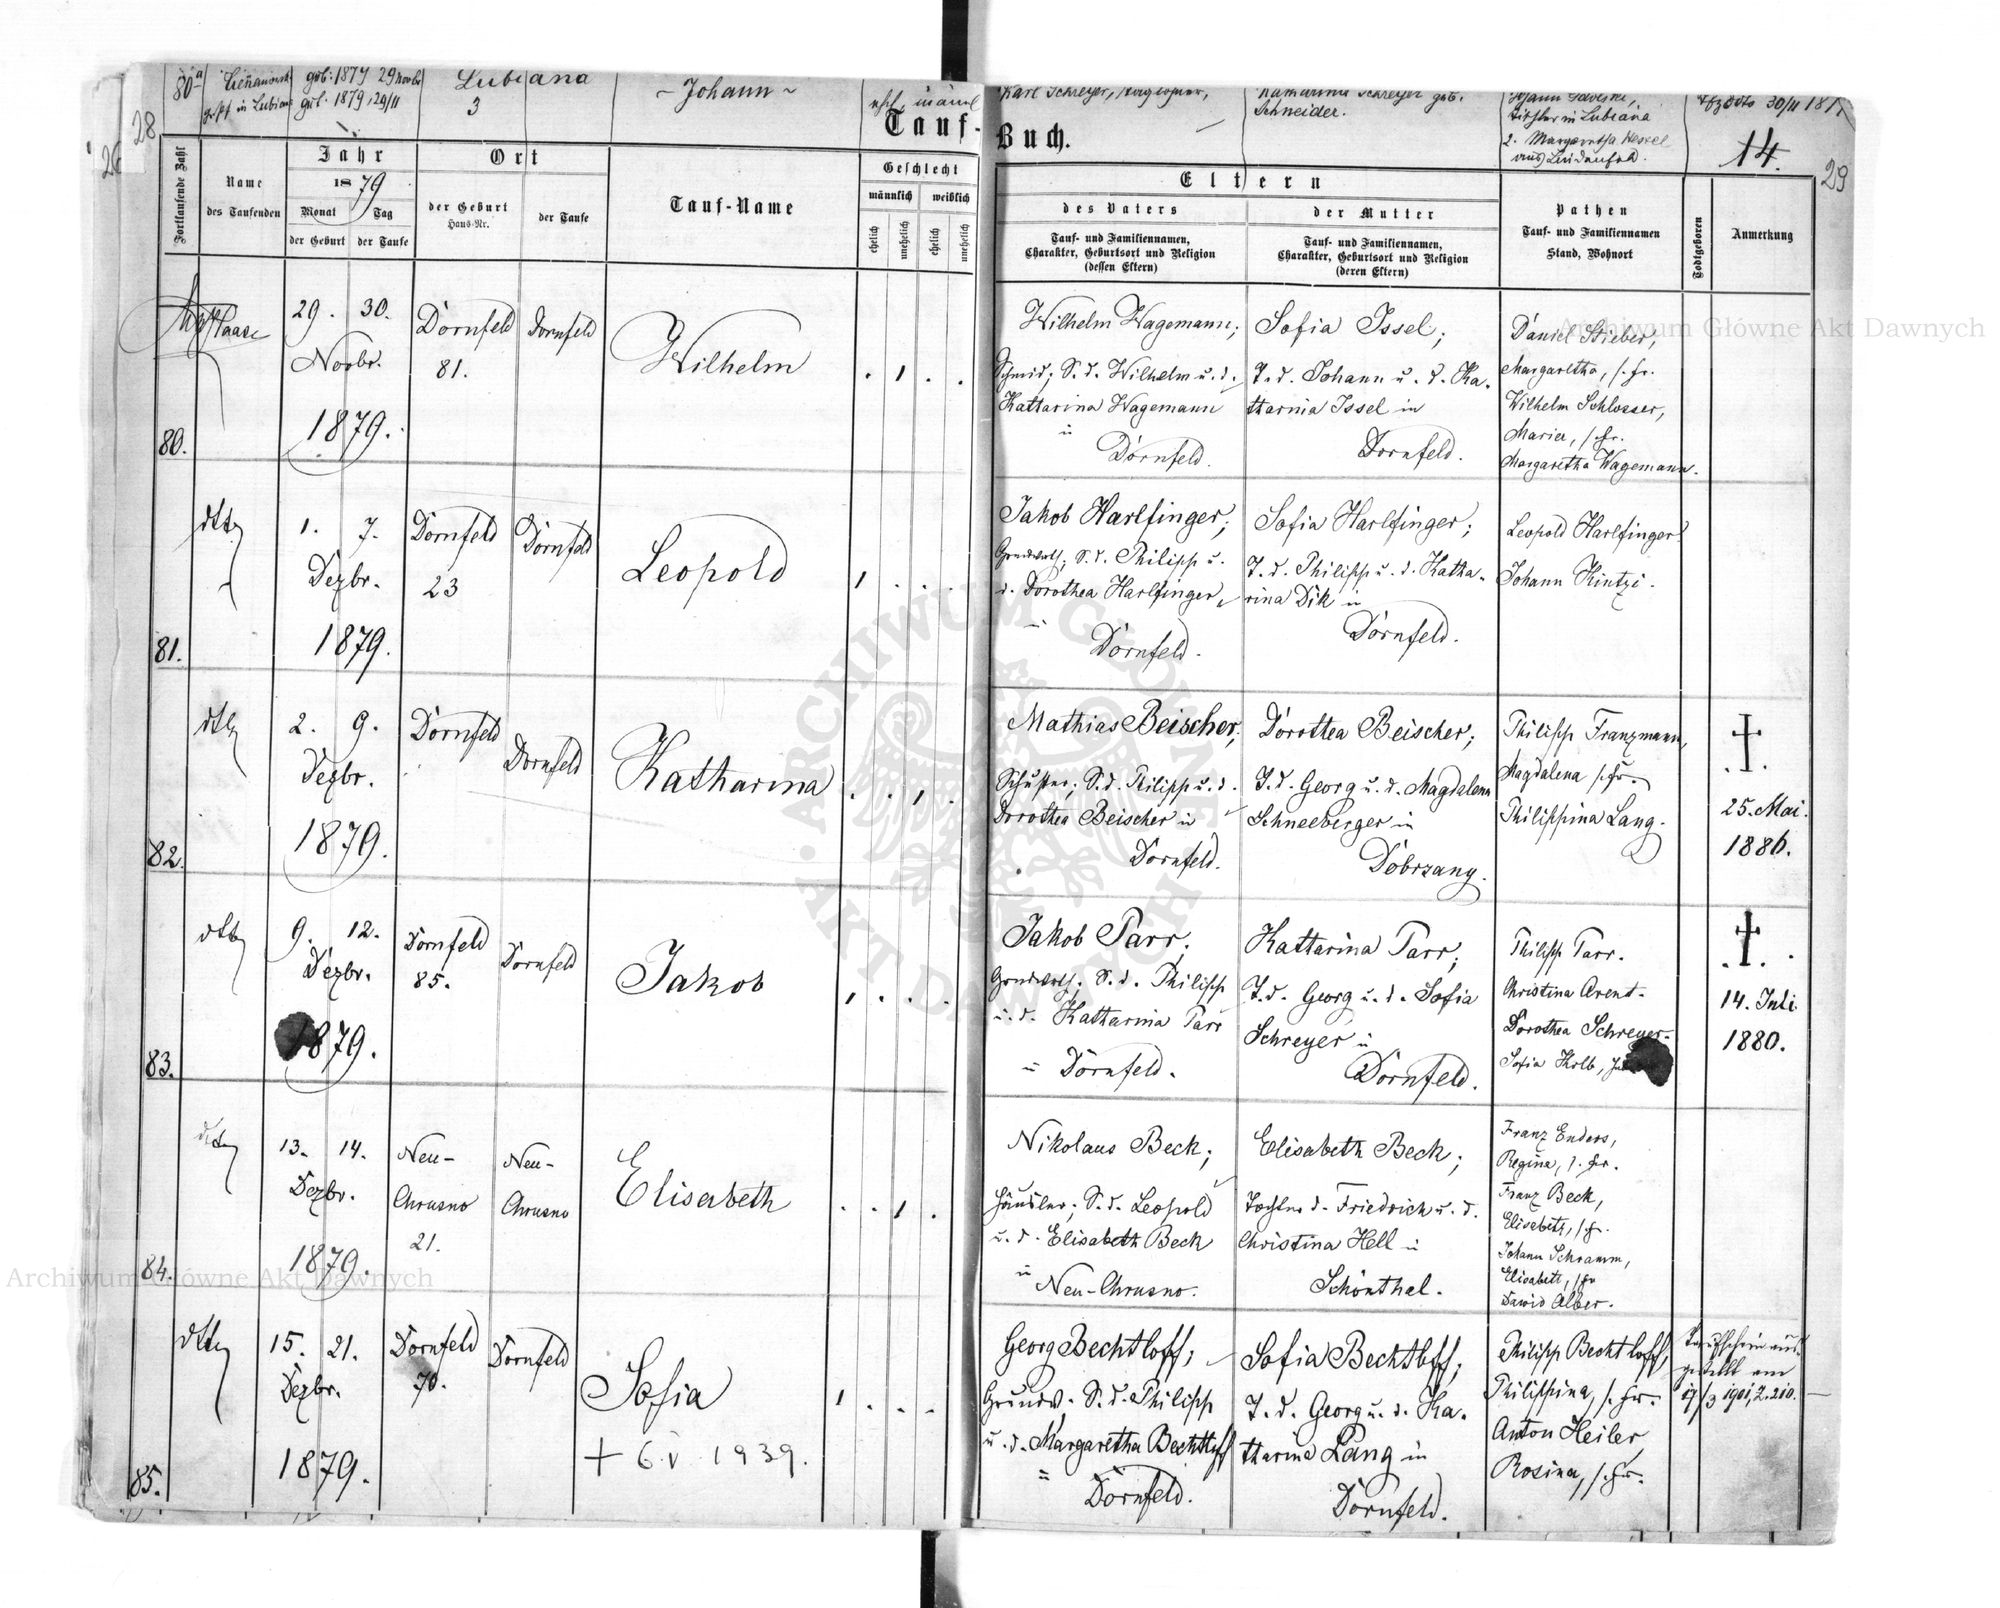 80a
gb. 1879 29 Novbr
gtf. 1879, 29/11
Lubiana
3
~ Johann ~
ehl. männl
Karl Schreyer,
Katharina Schreyer geb.
Schneider.
in Lubiana
2. Margaretha Wessel
aus Lindenfeld.
30/11 187
28
26
Tauf-
Buch.
14.
29
Fortlaufende Zahl
Name
des Taufenden
Jahr
1879
Monat
Tag
der Geburt
der Taufe
Ort
der Geburt
Haus-Nr.
der Taufe
Tauf-Name
Geschlecht
männlich
weiblich
ehelich
unehelich
ehelich
unehelich
Eltern
des Vaters
Tauf- und Familiennamen,
Charakter, Geburtsort und Religion
(dessen Eltern)
der Mutter
Tauf- und Familiennamen,
Charakter, Geburtsort und Religion
(deren Eltern)
Pathen
Tauf- und Familiennamen
Stand, Wohnort
Todtgeboren
Anmerkung
80.
29. 30.
Novbr.
1879.
Dornfeld
81.
Dornfeld
Wilhelm
Wilhelm Wagemann;
Schmid; S. d. Wilhelm u. d.
Kattarina Wagemann
in
Dornfeld.
Sofia Issel;
T. d. Johann u. d. Ka-
tharina Issel in
Dornfeld.
Daniel Stieber,
Margaretha, s. Fr.
Wilhelm Schlosser,
Maria, s. Fr.
Margaretha Wagemann.
81.
dtto
1. 7.
Dezbr.
1879.
Dornfeld
23
Dornfeld
Leopold
Jakob Harlfinger;
Grundwrth; S. d. Philipp u.
d. Dorothea Harlfinger,
in
Dornfeld.
Sofia Harlfinger;
T. d. Philipp u. d. Katha-
rina Dik in
Dornfeld.
Leopold Harlfinger
Johann Kintzi.
82.
dtto
2. 9.
Dezbr.
1879.
Dornfeld
Dornfeld
Katharina
Mathias Beischer;
Schuster; S. d. Philipp u. d.
Dorothea Beischer in
Dornfeld.
Dorothea Beischer;
T. d. Georg u. d. Magdalena
Schneeberger in
Dobrzany.
Philipp Franzmann,
Magdalena s. Fr.
Philippina Lang.
†
25. Mai.
1886.
83.
dtto
9. 12.
Dezbr.
1879.
Dornfeld
85.
Dornfeld
Jakob
Jakob Parr;
Grundwrth; S. d. Philipp
u. d. Katharina Parr
in Dornfeld.
Kattarina Parr;
T. d. Georg u. d. Sofia
Schreyer in
Dornfeld.
Philipp Parr.
Christina Arent.
Dorothea Schreyer.
Sofia Kolb,
†
14. Juli
1880.
84.
dtto
13. 14.
Dezbr.
1879.
Neu-
Chrusno
21.
Neu-
Chrusno
Elisabeth
Nikolaus Beck;
Häusler; S. d. Leopold
u. d. Elisabeth Beck
in
Neu-Chrusno.
Elisabeth Beck;
Tochter d. Friedrich u. d.
Christina Hell in
Schönthal.
Franz Enders,
Regina, s. Fr.
Franz Beck,
Elisabeth, s. Fr.
Johann Schramm,
Elisabeth, s. Fr
Dawid Alber.
85.
dtto
15. 21.
Dezbr.
1879.
Dornfeld
70.
Dornfeld
Sofia
+ 6. V. 1939.
Georg Bechtloff;
Grundw. S. d. Philipp
u. d. Margaretha Bechtloff
in
Dornfeld.
Sofia Bechtloff;
T. d. Georg u. d. Ka-
tharina Lang in
Dornfeld.
Philipp Bechtloff,
Philippina, s. Fr.
Anton Heiler,
Rosina, s. Fr.
Taufschein aus-
gestellt am
17/3 1901, Z. 210.
Archiwum Główne Akt Dawnych
Archiwum Główne Akt Dawnych
ARCHIWUM GŁÓWNE AKT DAWNYCH